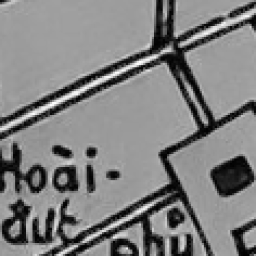 Hoài-
đưt
phủ